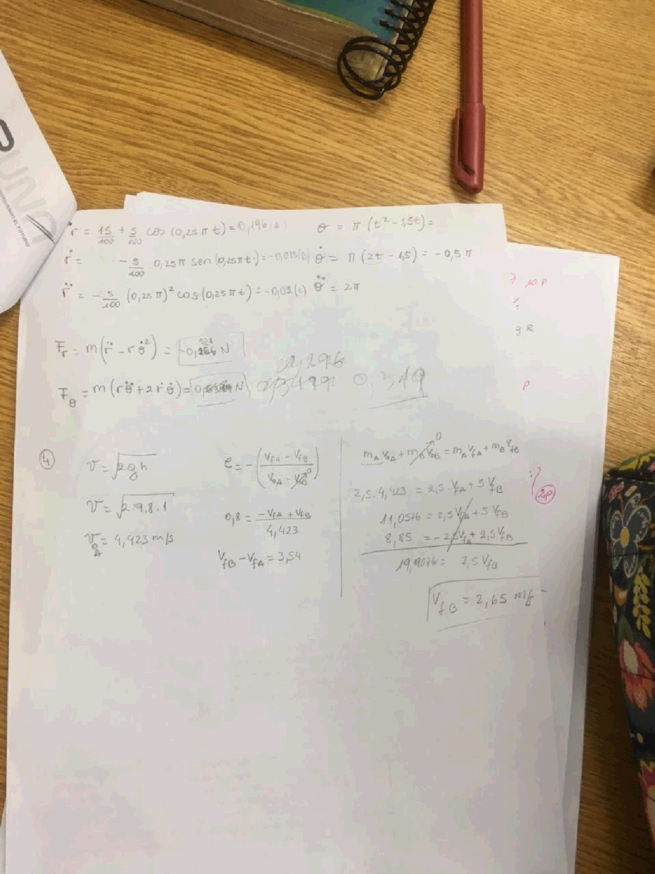 r = 15/100 + 5/100 cos (0,25πt) = 0,196 θ = π(t² - 1,5t) =
ṙ = - 5/100 0,25π sen (0,25πt) = θ̇ = π(2t - 1,5) = -0,5π
r̈ = - 5/100 (0,25π)² cos (0,25πt) = -0,02 θ̈ = 2π
F_r = m(r̈ - rθ̇²) = N
F_θ = m(rθ̈ + 2ṙθ̇) = N
4
v = √2gh
v = √2·9,8·1
v_A = 4,423 m/s
e = -((v_fA - v_fB)/(v_oA - v_oB))
0,8 = (-v_fA + v_fB)/4,423
v_fB - v_fA = 3,54
m_A v_oA + m_B v_oB = m_A v_fA + m_B v_fB
0
2,5·4,423 = 2,5·v_fA + 5 v_fB
11,0576 = 2,5 v_fA + 5 v_fB
8,85 = -2,5 v_fA + 2,5 v_fB
19,9076 = 7,5 v_fB
v_fB = 2,65 m/s